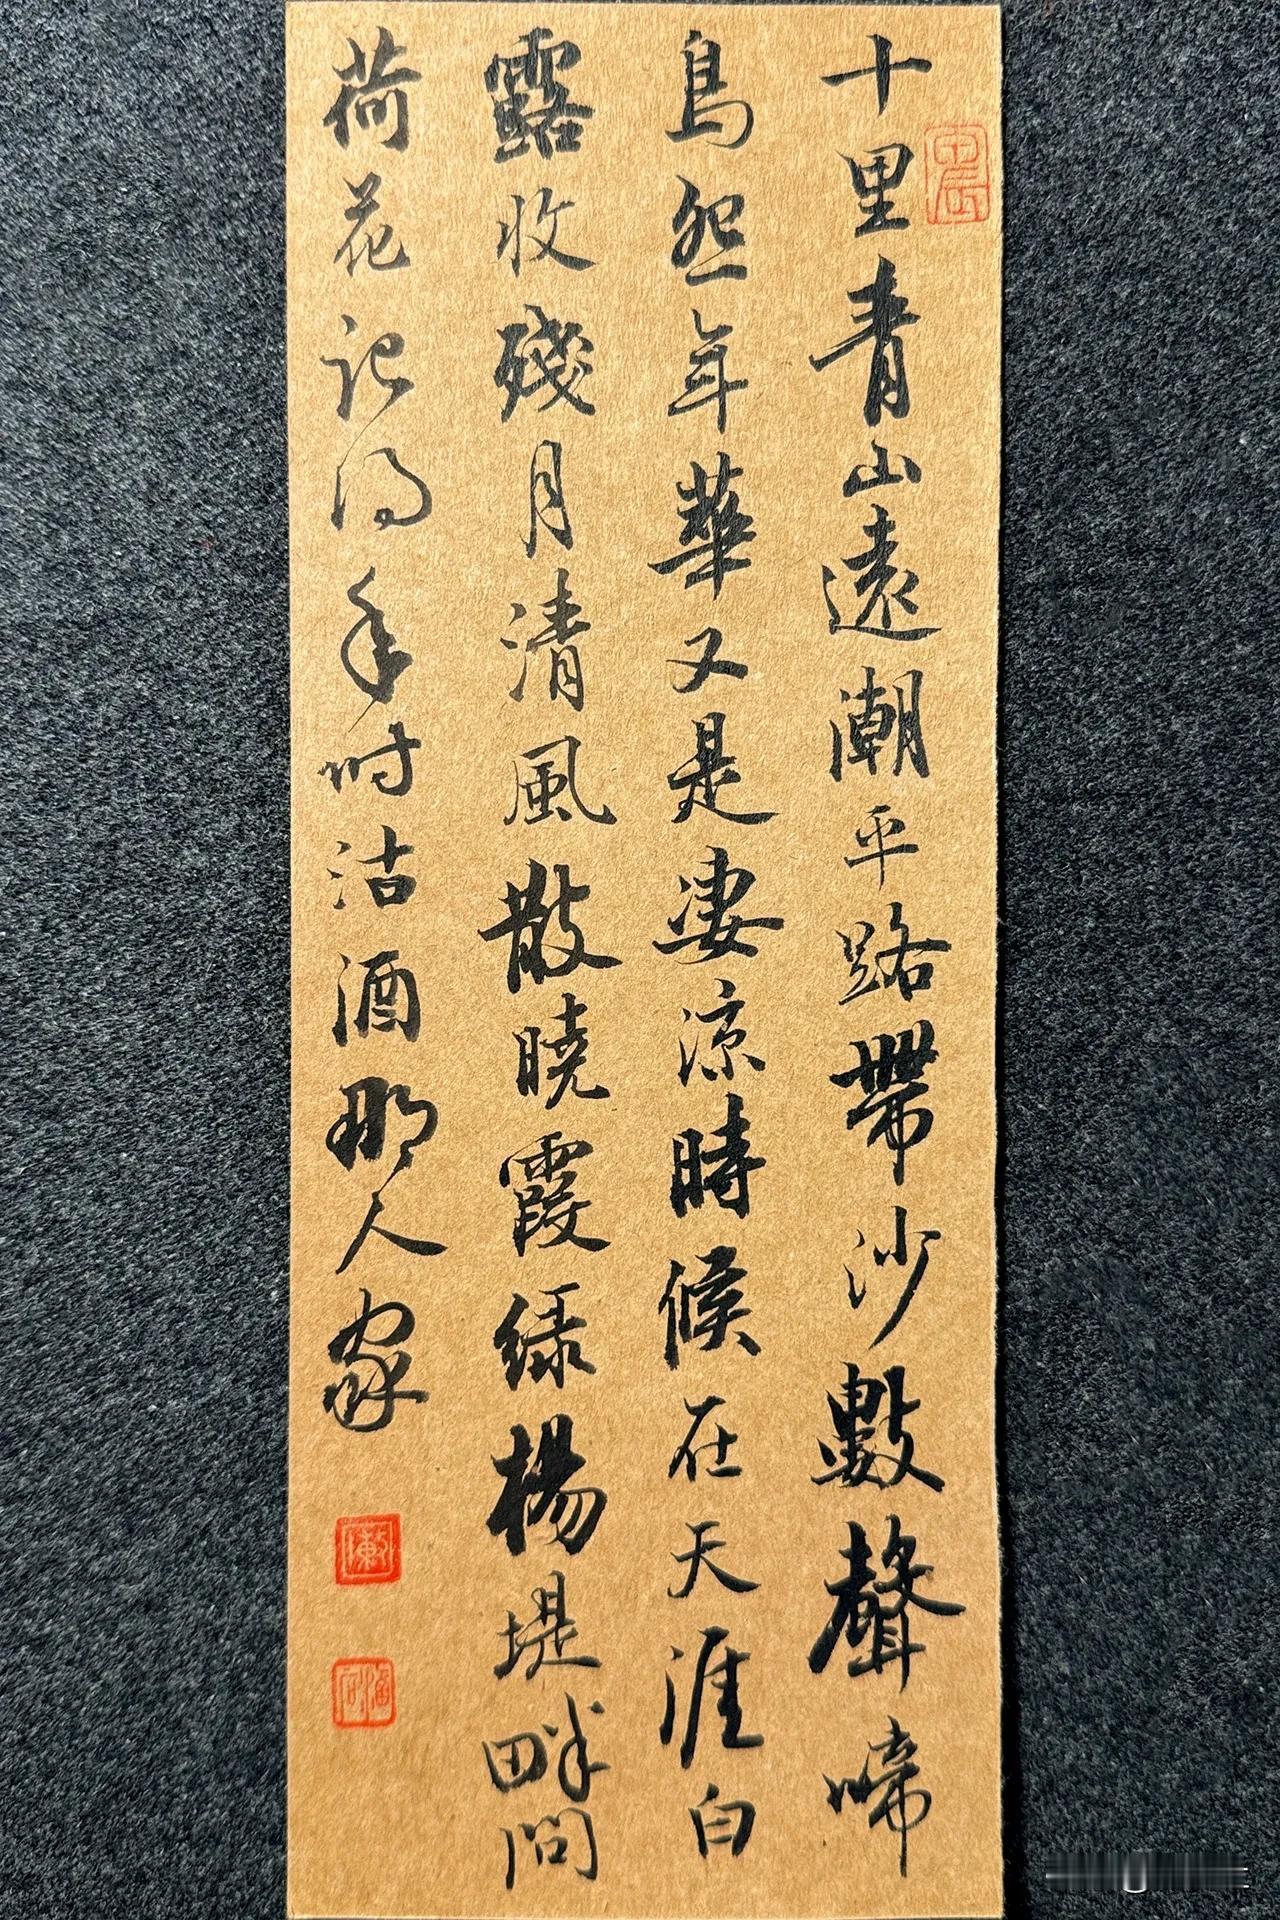 十里青山遠潮平路帶沙數聲啼
鳥怨年華又是凄涼時候在天涯白
露收殘月清風散曉霞綠楊堤畔問
荷花記得年時沽酒那人家